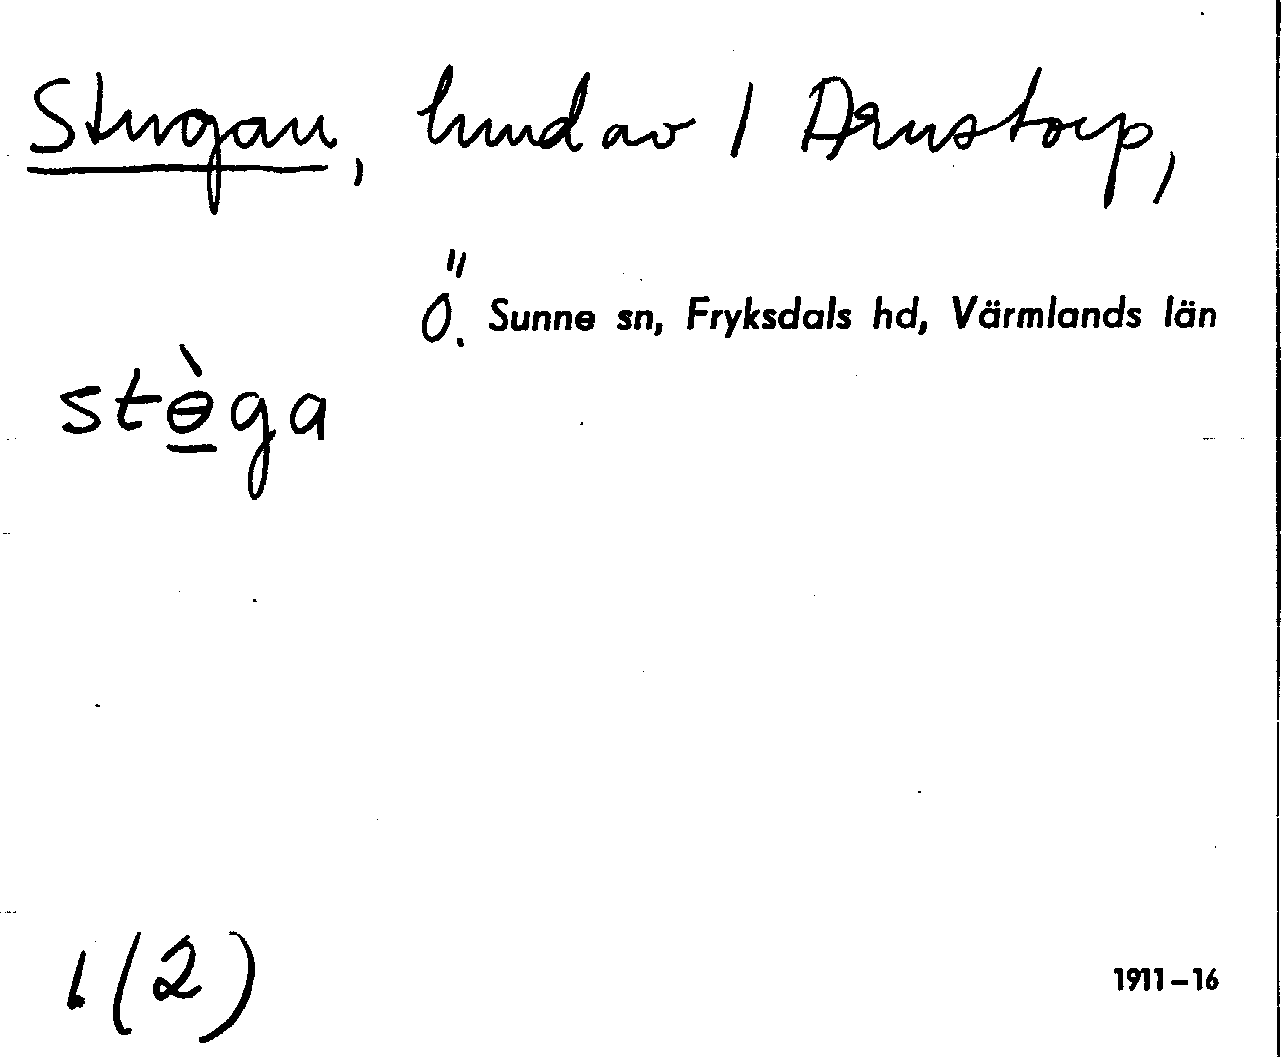 Stugan, hmd av 1 Arnstorp,
Ö. Sunne sn, Fryksdals hd, Värmlands län
stɵ̀ga
1(2)
1911–16